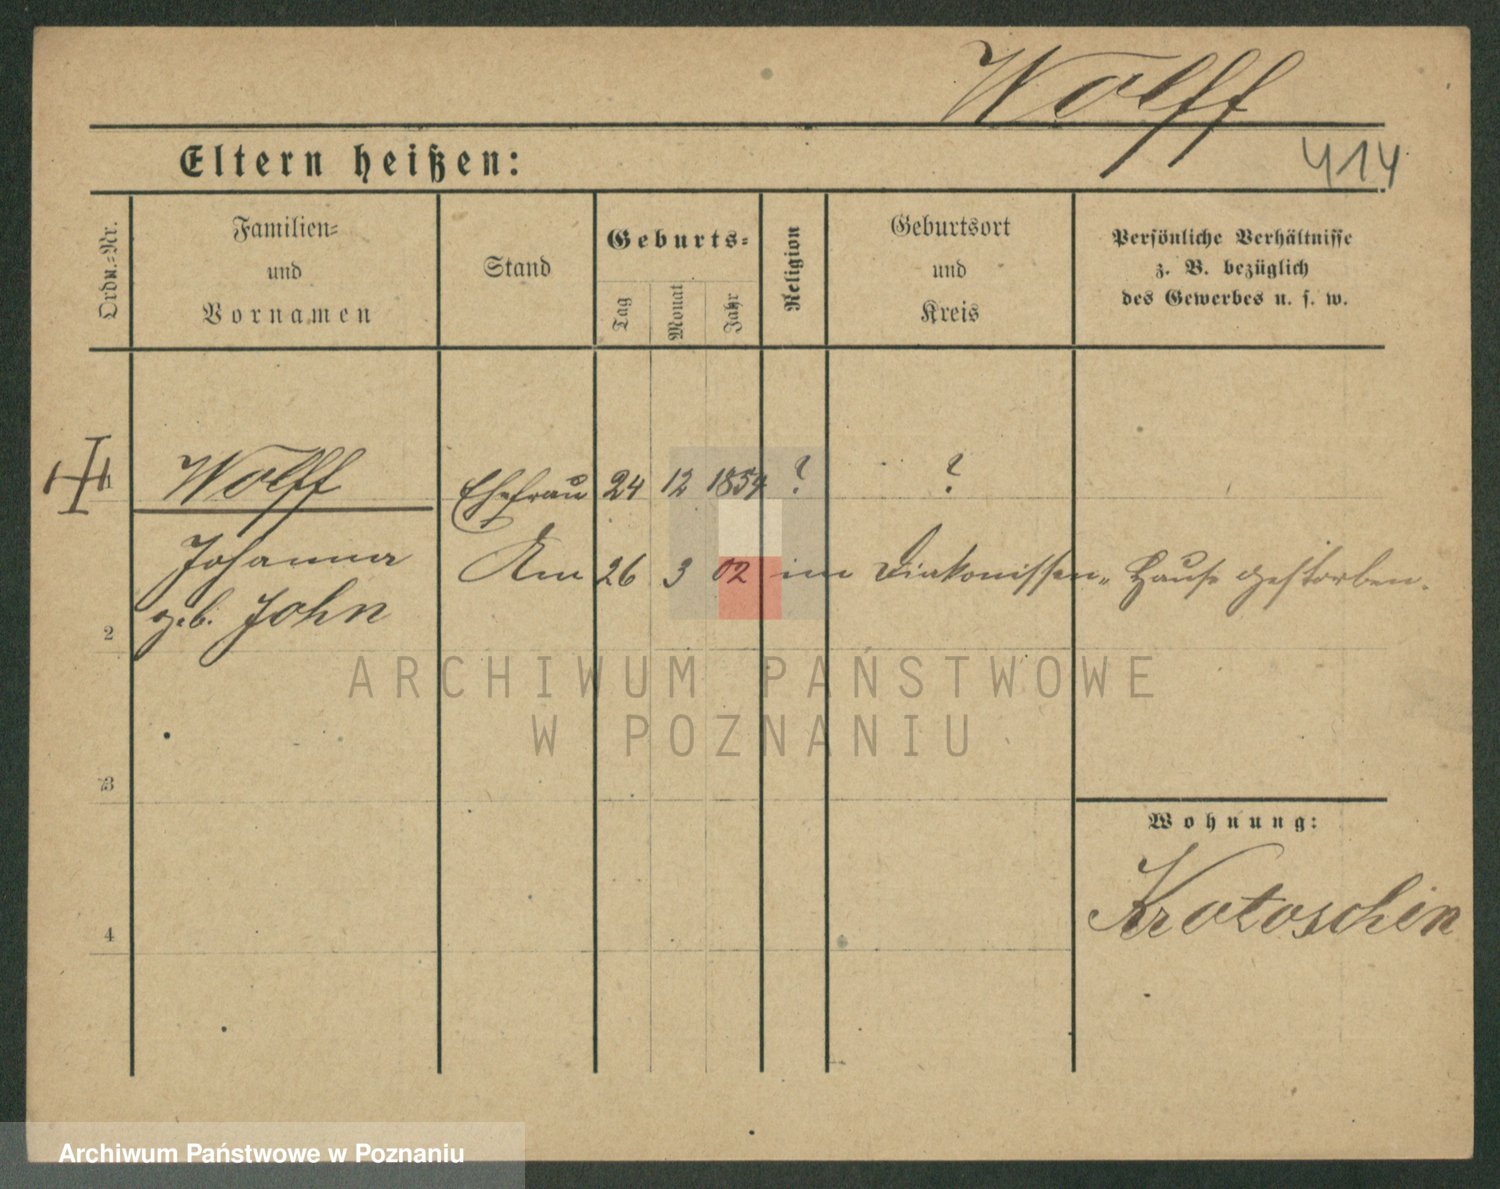 Wolff
Eltern heißen:
414
Ordn.=Nr.
Familien=
und
Vornamen
Stand
Geburts=
Tag
Monat
Jahr
Religion
Geburtsort
und
Kreis
Persönliche Verhältnisse
z. B. bezüglich
des Gewerbes u. s. w.
1 Wolff Ehefrau 24 12 1854 ? ?
Johanna Am 26 3 02 im Diakonissen- Hause gestorben.
geb. John
2
3
Wohnung:
Krotoschin
4
ARCHIWUM PAŃSTWOWE
W POZNANIU
Archiwum Państwowe w Poznaniu